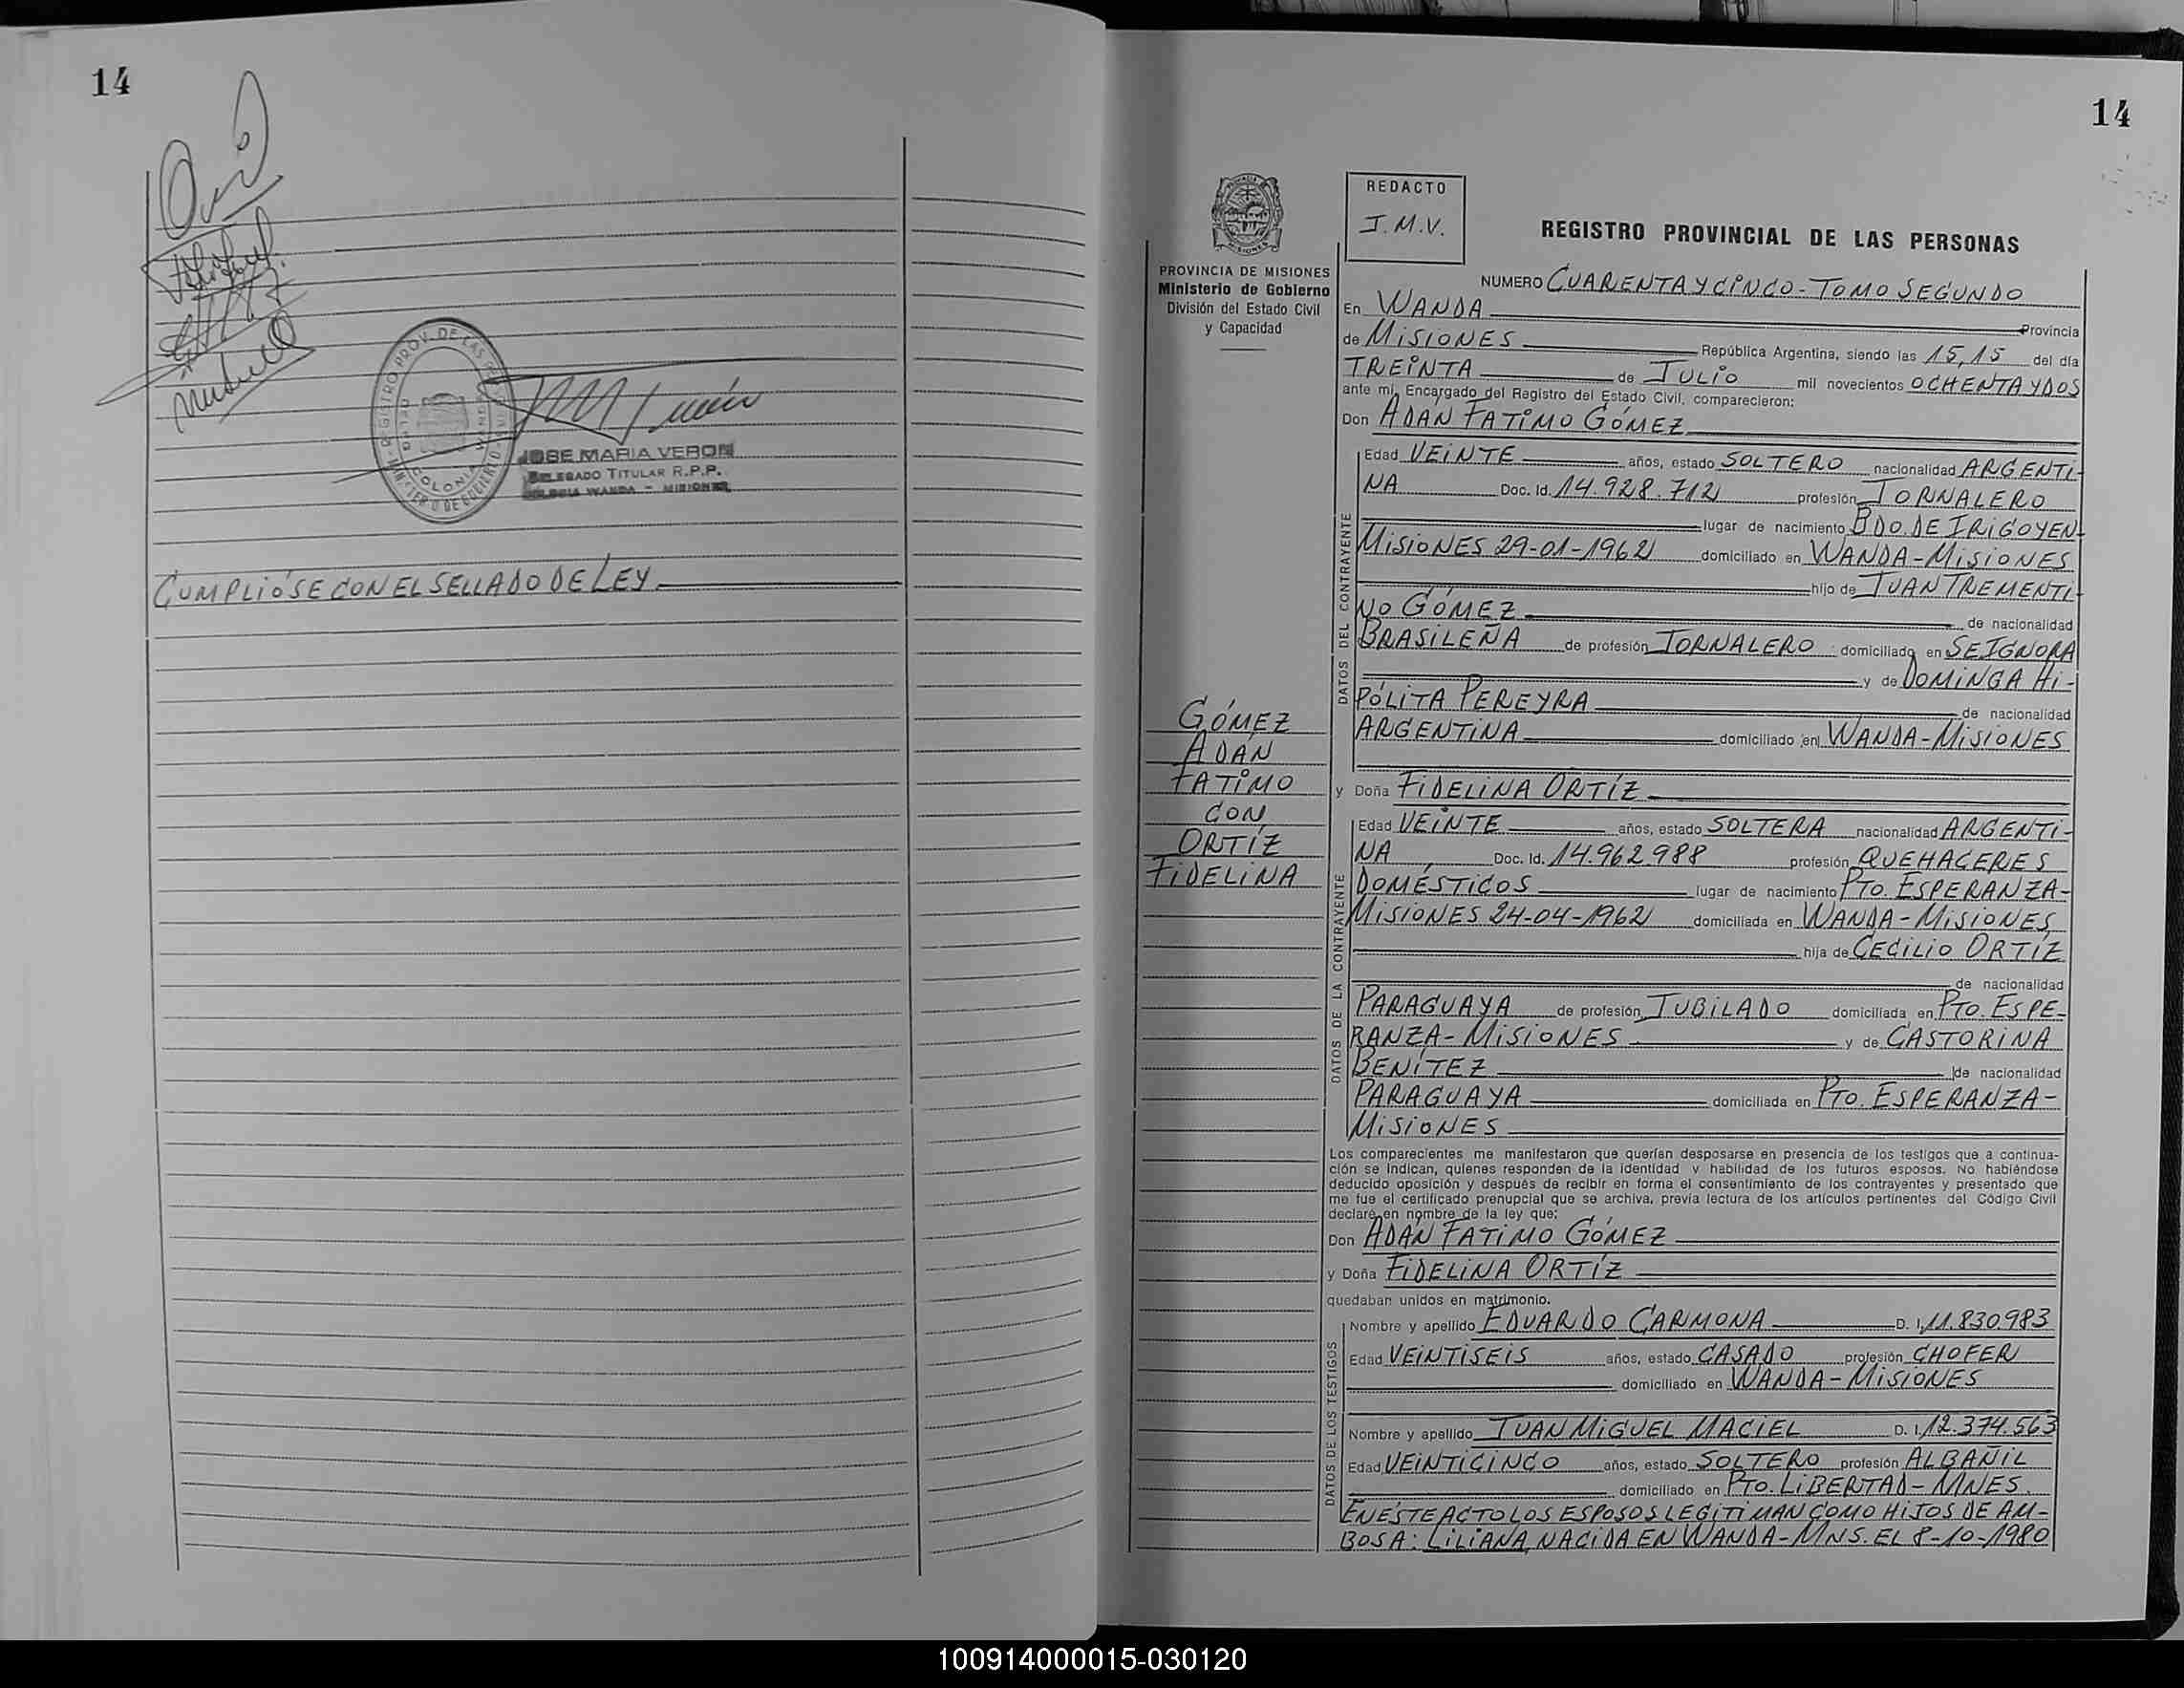 14
REGISTRO PROV. DE LAS
COLONIA WANDA
JOSE MARIA VERON
DELEGADO TITULAR R.P.P.
COLONIA WANDA - MISIONES
CUMPLIÓSE CON EL SELLADO DE LEY.
14
REDACTO
J.M.V.
PROVINCIA DE MISIONES
Ministerio de Gobierno
División del Estado Civil
y Capacidad
GÓMEZ
ADAN
FATIMO
CON
ORTÍZ
FIDELINA
REGISTRO PROVINCIAL DE LAS PERSONAS
NUMERO CUARENTA Y CINCO - TOMO SEGUNDO
En WANDA Provincia
de MISIONES República Argentina, siendo las 15,15 del día
TREINTA de JULIO mil novecientos OCHENTA Y DOS
ante mi, Encargado del Registro del Estado Civil, comparecieron:
Don ADAN FATIMO GÓMEZ
DATOS DEL CONTRAYENTE
Edad VEINTE años, estado SOLTERO nacionalidad ARGENTI-
NA Doc. Id. 14.928.712 profesión JORNALERO
lugar de nacimiento BDO. DE IRIGOYEN-
MISIONES 29-01-1962 domiciliado en WANDA-MISIONES
hijo de JUAN TREMENTI-
NO GÓMEZ de nacionalidad
BRASILEÑA de profesión JORNALERO domiciliado en SE IGNORA
y de DOMINGA HI-
PÓLITA PEREYRA de nacionalidad
ARGENTINA domiciliado en WANDA-MISIONES
y Doña FIDELINA ORTÍZ
DATOS DE LA CONTRAYENTE
Edad VEINTE años, estado SOLTERA nacionalidad ARGENTI-
NA Doc. Id. 14.962.988 profesión QUEHACERES
DOMÉSTICOS lugar de nacimiento PTO. ESPERANZA-
MISIONES 24-04-1962 domiciliada en WANDA-MISIONES
hija de CECILIO ORTÍZ
de nacionalidad
PARAGUAYA de profesión JUBILADO domiciliada en PTO. ESPE-
RANZA-MISIONES y de CASTORINA
BENÍTEZ de nacionalidad
PARAGUAYA domiciliada en PTO. ESPERANZA-
MISIONES
Los comparecientes me manifestaron que querían desposarse en presencia de los testigos que a continua-
ción se indican, quienes responden de la identidad y habilidad de los futuros esposos. No habiéndose
deducido oposición y después de recibir en forma el consentimiento de los contrayentes y presentado que
me fue el certificado prenupcial que se archiva, previa lectura de los artículos pertinentes del Código Civil
declaré en nombre de la ley que:
Don ADÁN FATIMO GÓMEZ
y Doña FIDELINA ORTÍZ
quedaban unidos en matrimonio.
DATOS DE LOS TESTIGOS
Nombre y apellido EDUARDO CARMONA D. I. 11.830.983
Edad VEINTISEIS años, estado CASADO profesión CHOFER
domiciliado en WANDA-MISIONES
Nombre y apellido JUAN MIGUEL MACIEL D. I. 12.374.563
Edad VEINTICINCO años, estado SOLTERO profesión ALBAÑIL
domiciliado en PTO. LIBERTAD-MNES.
EN ÉSTE ACTO LOS ESPOSOS LEGITIMAN COMO HIJOS DE AM-
BOS A: LILIANA, NACIDA EN WANDA-MNS. EL 8-10-1980
100914000015-030120